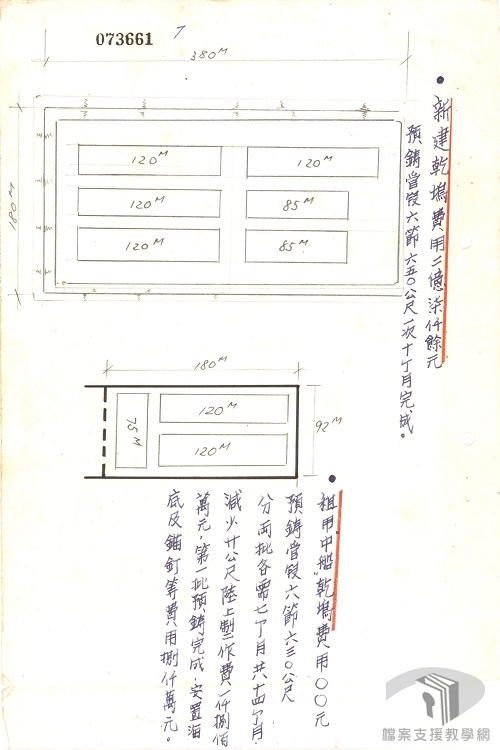 073661
380M
180M
120M
120M
120M
85M
120M
85M
•新建乾塢費用二億柒仟餘元
預鑄管段六節六五〇公尺一次十個月完成。
180M
92M
75M
120M
120M
•租用中船乾塢費用〇〇元
預鑄管段六節六三〇公尺
分兩批各需七個月共十四個月.
減少廿公尺陸上製作費一仟捌佰
萬元,第一批預鑄完成,安置海
底及錨釘等費用捌仟萬元。
檔案支援教學網